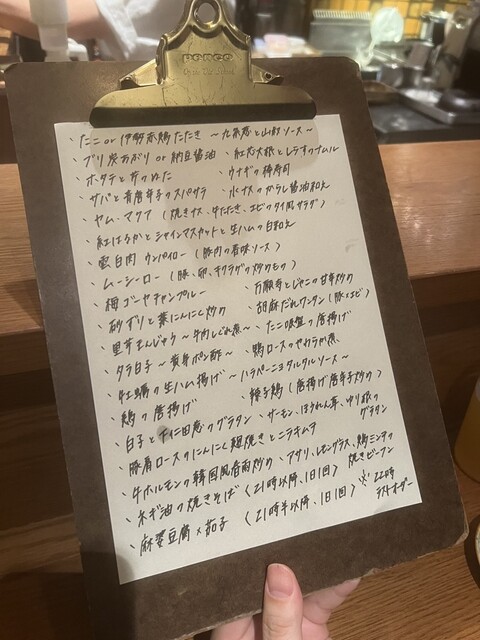 penco
・たこ or 伊勢赤鶏たたき 〜九条葱と山椒ソース〜
・ブリ炭あぶり or 納豆醤油 ・紅芯大根としらすのナムル
・ホタテと芹のぬた ・ウナギの棒寿司
・サバと青唐辛子のスパサラ ・水ナスのからし醤油和え
・ヤム・マクア (焼きナス、牛たたき、エビのタイ風サラダ)
・紅はるかとシャインマスカットと生ハムの白和え
・雲白肉 ウンパイロー (豚肉の香味ソース)
・ムーシーロー (豚、卵、キクラゲの炒めもの)
・梅ゴーヤチャンプルー ・万願寺とじゃこの甘辛炒め
・砂ずりと葉にんにく炒め ・胡麻だれワンタン (豚、エビ)
・里芋まんじゅう 〜牛肉しぐれ煮〜 ・たこ吸盤の唐揚げ
・タラ白子 〜黄身ポン酢〜 ・鴨ロースのやわらか煮
・牡蠣の生ハム揚げ 〜ハラペーニョタルタルソース〜
・鶏の唐揚げ ・辣子鶏 (唐揚げ唐辛子炒め)
・白子と下仁田葱のグラタン ・サーモン、ほうれん草、ゆり根のグラタン
・豚肩ロースのにんにく麹焼きとニラキムチ
・牛ホルモンの韓国風春雨炒め ・アサリ、レモングラス、鶏ミンチの焼きビーフン
・ネギ油の焼きそば (21時以降、1日1回)
・麻婆豆腐×茄子 (21時半以降、1日1回) ※22時ラストオーダー